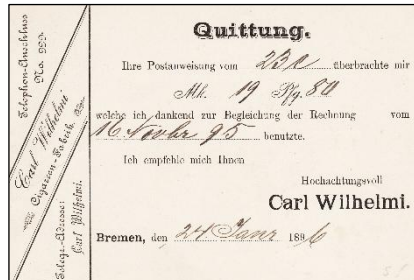 Telephon-Anschluss
No. 999.
Carl Wilhelmi
Cigarren-Fabrik
Telegr.-Adresse:
Carl Wilhelmi.
Quittung.
Ihre Postanweisung vom 23 c überbrachte mir
Mk. 19 Pfg. 80
welche ich dankend zur Begleichung der Rechnung vom
16 Novbr 95 benutzte.
Ich empfehle mich Ihnen
Hochachtungsvoll
Carl Wilhelmi.
Bremen, den 24 Janr 1896